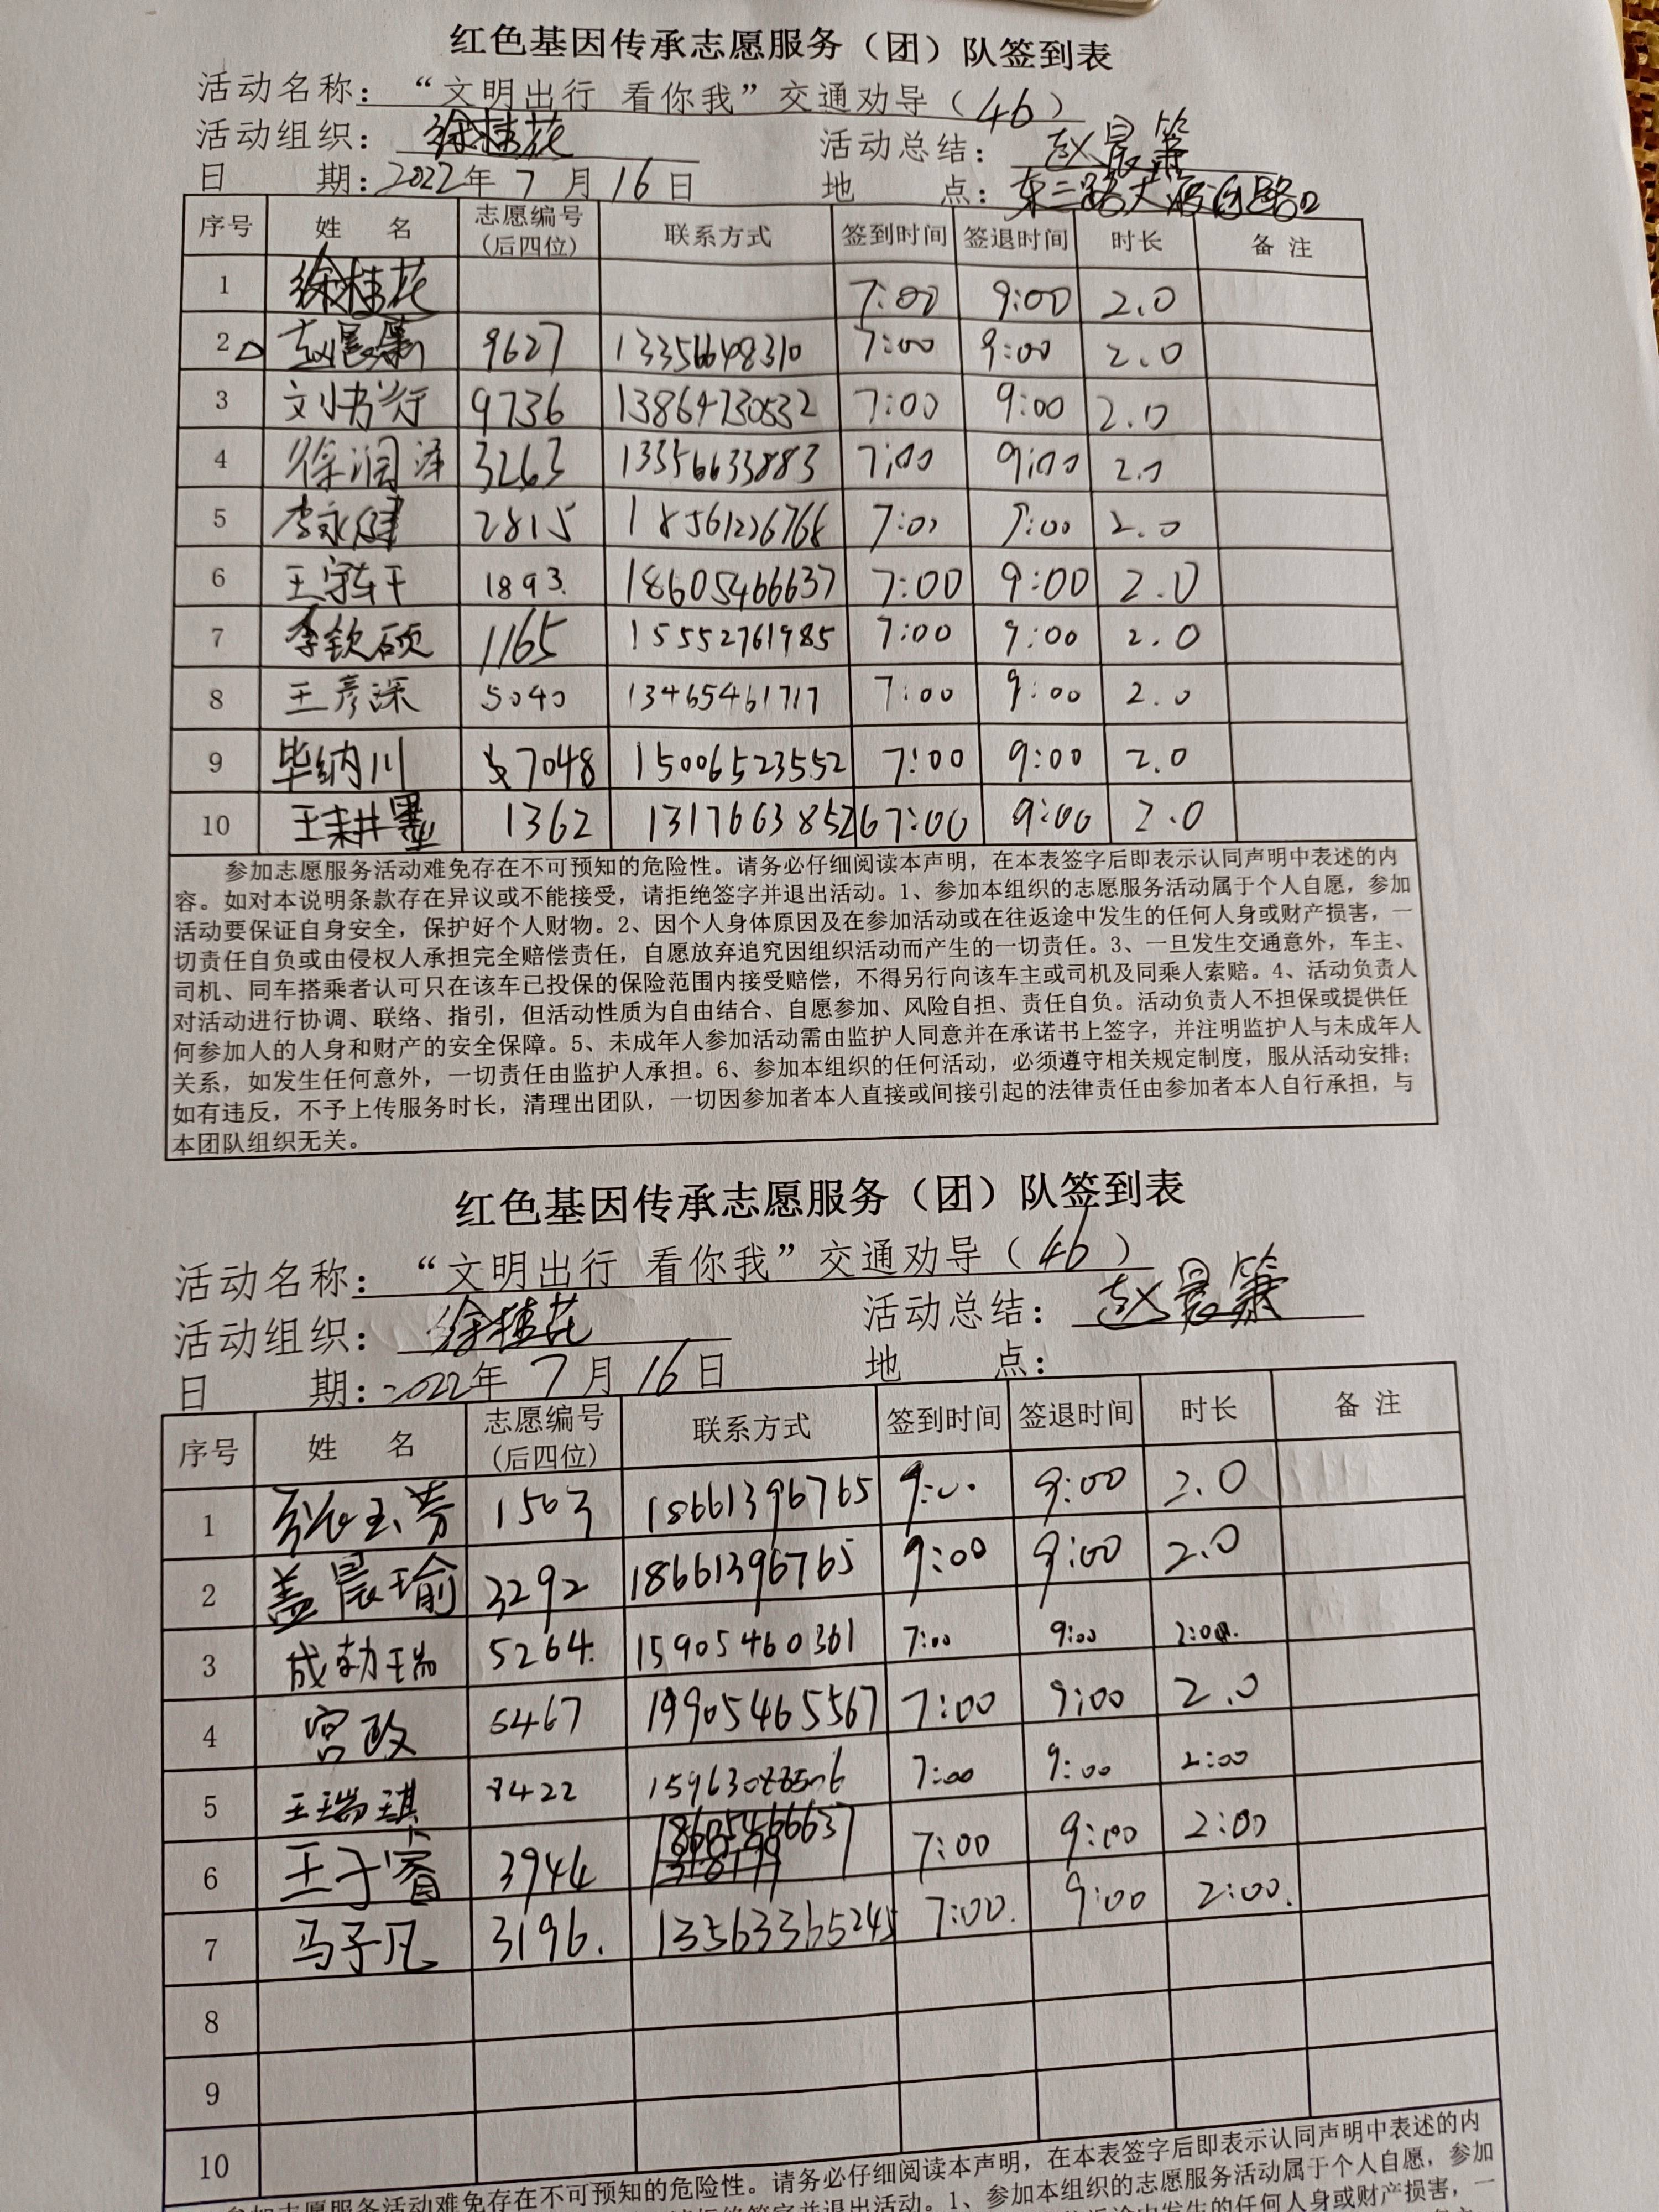 红色基因传承志愿服务（团）队签到表
活动名称：“文明出行 看你我”交通劝导（46）
活动组织：徐桂花 活动总结：赵晨
日 期：2022年7月16日 地 点：东二路大 路口
序号 姓 名 志愿编号（后四位） 联系方式 签到时间 签退时间 时长 备 注
1 徐桂花 7:00 9:00 2.0
2 赵晨 9627 13356648310 7:00 9:00 2.0
3 刘书 9736 13864730532 7:00 9:00 2.0
4 徐润泽 3263 13356633883 7:00 9:00 2.0
5 李永健 2815 18561226768 7:00 9:00 2.0
6 王 1893. 18605466637 7:00 9:00 2.0
7 李钦硕 1165 15552761985 7:00 9:00 2.0
8 王彦深 5040 13465461717 7:00 9:00 2.0
9 毕纳川 7048 15006523552 7:00 9:00 2.0
10 王耕墨 1362 7:00 9:00 2.0
参加志愿服务活动难免存在不可预知的危险性。请务必仔细阅读本声明，在本表签字后即表示认同声明中表述的内
容。如对本说明条款存在异议或不能接受，请拒绝签字并退出活动。1、参加本组织的志愿服务活动属于个人自愿，参加
活动要保证自身安全，保护好个人财物。2、因个人身体原因及在参加活动或在往返途中发生的任何人身或财产损害，一
切责任自负或由侵权人承担完全赔偿责任，自愿放弃追究因组织活动而产生的一切责任。3、一旦发生交通意外，车主、
司机、同车搭乘者认可只在该车已投保的保险范围内接受赔偿，不得另行向该车主或司机及同乘人索赔。4、活动负责人
对活动进行协调、联络、指引，但活动性质为自由结合、自愿参加、风险自担、责任自负。活动负责人不担保或提供任
何参加人的人身和财产的安全保障。5、未成年人参加活动需由监护人同意并在承诺书上签字，并注明监护人与未成年人
关系，如发生任何意外，一切责任由监护人承担。6、参加本组织的任何活动，必须遵守相关规定制度，服从活动安排；
如有违反，不予上传服务时长，清理出团队，一切因参加者本人直接或间接引起的法律责任由参加者本人自行承担，与
本团队组织无关。
红色基因传承志愿服务（团）队签到表
活动名称：“文明出行 看你我”交通劝导（46）
活动组织：徐桂花 活动总结：赵晨
日 期：2022年7月16日 地 点：
序号 姓 名 志愿编号（后四位） 联系方式 签到时间 签退时间 时长 备 注
1 张玉芳 1503 18661396765 9:00 2.0
2 盖晨瑜 3292 18661396765 9:00 9:00 2.0
3 成勃瑞 5264. 15905460361 7:00 9:00 2:00.
4 宫政 5467 19905465567 7:00 9:00 2.0
5 王瑞琪 8422 7:00 9:00 2:00
6 王子睿 3944 18605466637 7:00 9:00 2:00
7 马子凡 3196. 13563365245 7:00. 9:00 2:00.
8
9
10
参加志愿服务活动难免存在不可预知的危险性。请务必仔细阅读本声明，在本表签字后即表示认同声明中表述的内
请拒绝签字并退出活动。1、参加本组织的志愿服务活动属于个人自愿，参加
返途中发生的任何人身或财产损害，一